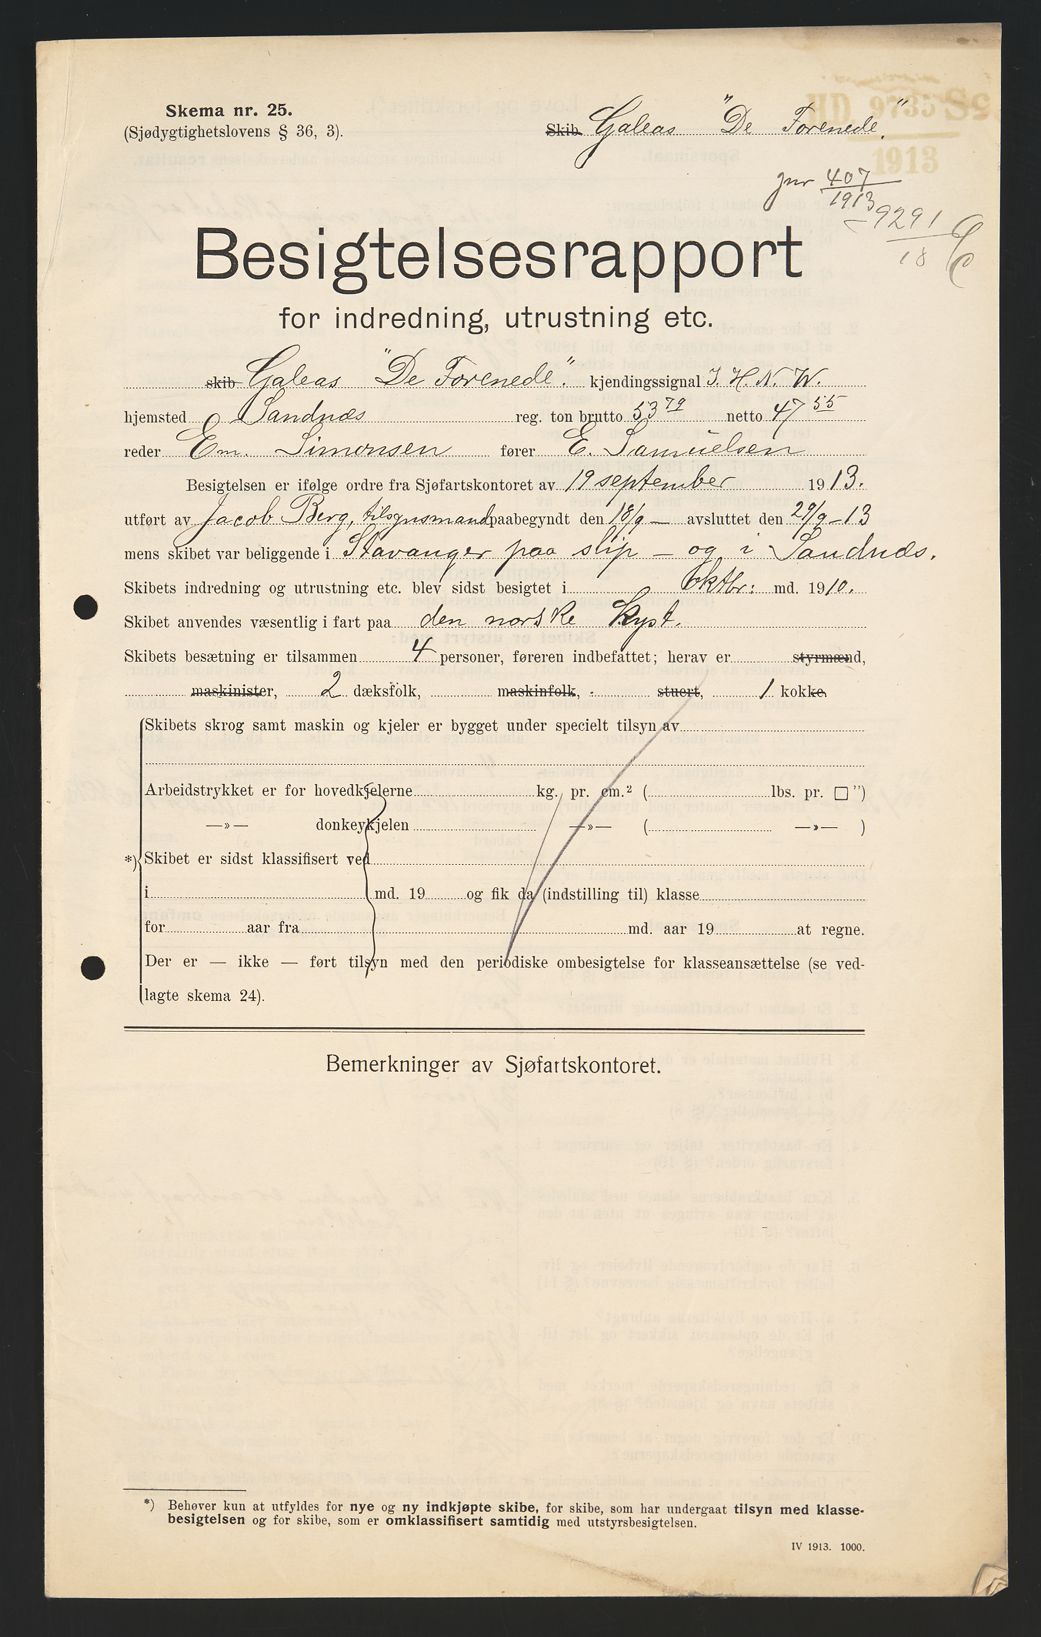 Skema nr. 25.
(Sjødygtighetslovens § 36, 3).
Skib Galeas "De Forenede".
HD 9735 Sc
1913
jnr 407
1913
9291
18
Besigtelsesrapport
for indredning, utrustning etc.
skib Galeas "De Forenede". kjendingssignal J. H. N. W.
hjemsted Sandnæs reg. ton brutto 53 79 netto 47 55
reder Em. Simonsen fører E. Samuelsen
Besigtelsen er ifølge ordre fra Sjøfartskontoret av 19 september 1913.
utført av Jacob Berg, tilsynsmand paabegyndt den 18/9 — avsluttet den 29/9-13
mens skibet var beliggende i Stavanger paa slip — og i Sandnæs.
Skibets indredning og utrustning etc. blev sidst besigtet i oktbr: md. 1910.
Skibet anvendes væsentlig i fart paa den norske kyst.
Skibets besætning er tilsammen 4 personer, føreren indbefattet; herav er styrmænd,
maskinister, 2 dæksfolk, maskinfolk, - stuert, 1 kokke.
Skibets skrog samt maskin og kjeler er bygget under specielt tilsyn av
Arbeidstrykket er for hovedkjelerne kg. pr. cm.² ( lbs. pr. □ ")
—»— donkeykjelen —»— ( —»— )
*) Skibet er sidst klassifisert ved
i md. 19 og fik da (indstilling til) klasse
for aar fra md. aar 19 at regne.
Der er — ikke — ført tilsyn med den periodiske ombesigtelse for klasseansættelse (se ved-
lagte skema 24).
Bemerkninger av Sjøfartskontoret.
*) Behøver kun at utfyldes for nye og ny indkjøpte skibe, for skibe, som har undergaat tilsyn med klasse-
besigtelsen og for skibe, som er omklassifisert samtidig med utstyrsbesigtelsen.
IV 1913. 1000.